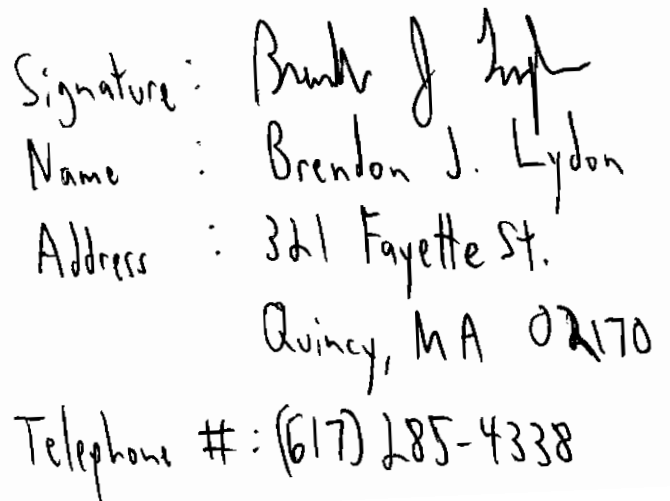 Signature:
Name : Brendon J. Lydon
Address : 321 Fayette St.
Quincy, MA 02170
Telephone #: (617) 285-4338